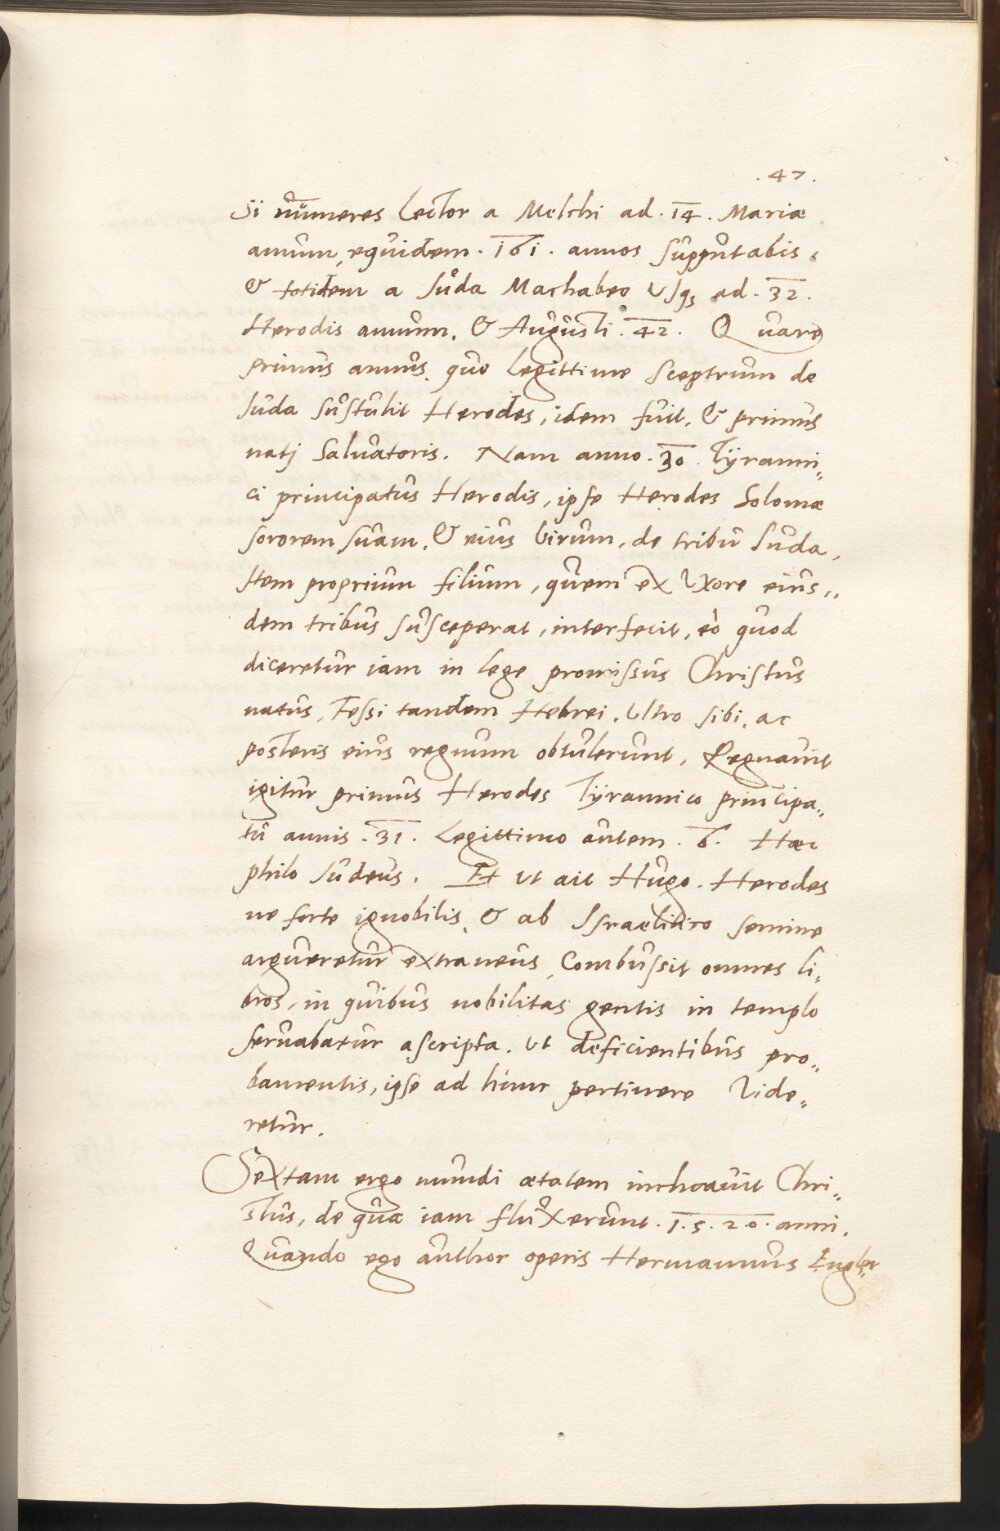 .47.
Si nũmeres Lector a Melchi ad .14. Mariæ
annum, eqŭidem .161. annos sŭppŭtabis,
& totidem a Iŭda Machabeo Vsq3 ad .32.
Herodis annŭm, & Aŭgŭsti .42. Qŭare
primŭs annŭs, quo Legittime sceptrŭm de
Iŭda sŭstŭlit Herodes, idem fŭit, & primŭs
natj Salŭatoris. Nam anno .30. Tÿranni„
ci principatŭs Herodis, ipse Herodes Solomæ
sororem sŭam, & eiŭs Virŭm, de tribŭ Iŭda,
Item propriŭm filiŭm, qŭem ex Vxore eiŭs„
dem tribŭs sŭsceperat, interfecit, eò qŭod
diceretŭr iam in lege promissŭs Christŭs
natŭs, Fessi tandem Hebrei, Vltro sibi, ac
posteris eiŭs regnŭm obtŭlerŭnt, Regnaŭit
igitŭr primŭs Herodes Tÿrannico principa„
tŭ annis .31. Legittimo aŭtem .6. Hæc
philo Iŭdeŭs. Et Vt ait Hŭgo. Herodes
ne forte ignobilis, & ab Israelitico semine
argŭeretŭr extraneŭs, Combŭssit omnes li„
bros, in qŭibŭs nobilitas gentis in templo
serŭabatŭr ascripta. Vt deficientibŭs pro„
bamentis, ipse ad hŭnc pertinere Vide„
retŭr.
Sextam ergo mŭndi ætatem inchoaŭit Chri„
stŭs, de qŭa iam flŭxerŭnt .1.5.20. anni.
Qŭando ego aŭthor operis Hermannŭs Engler